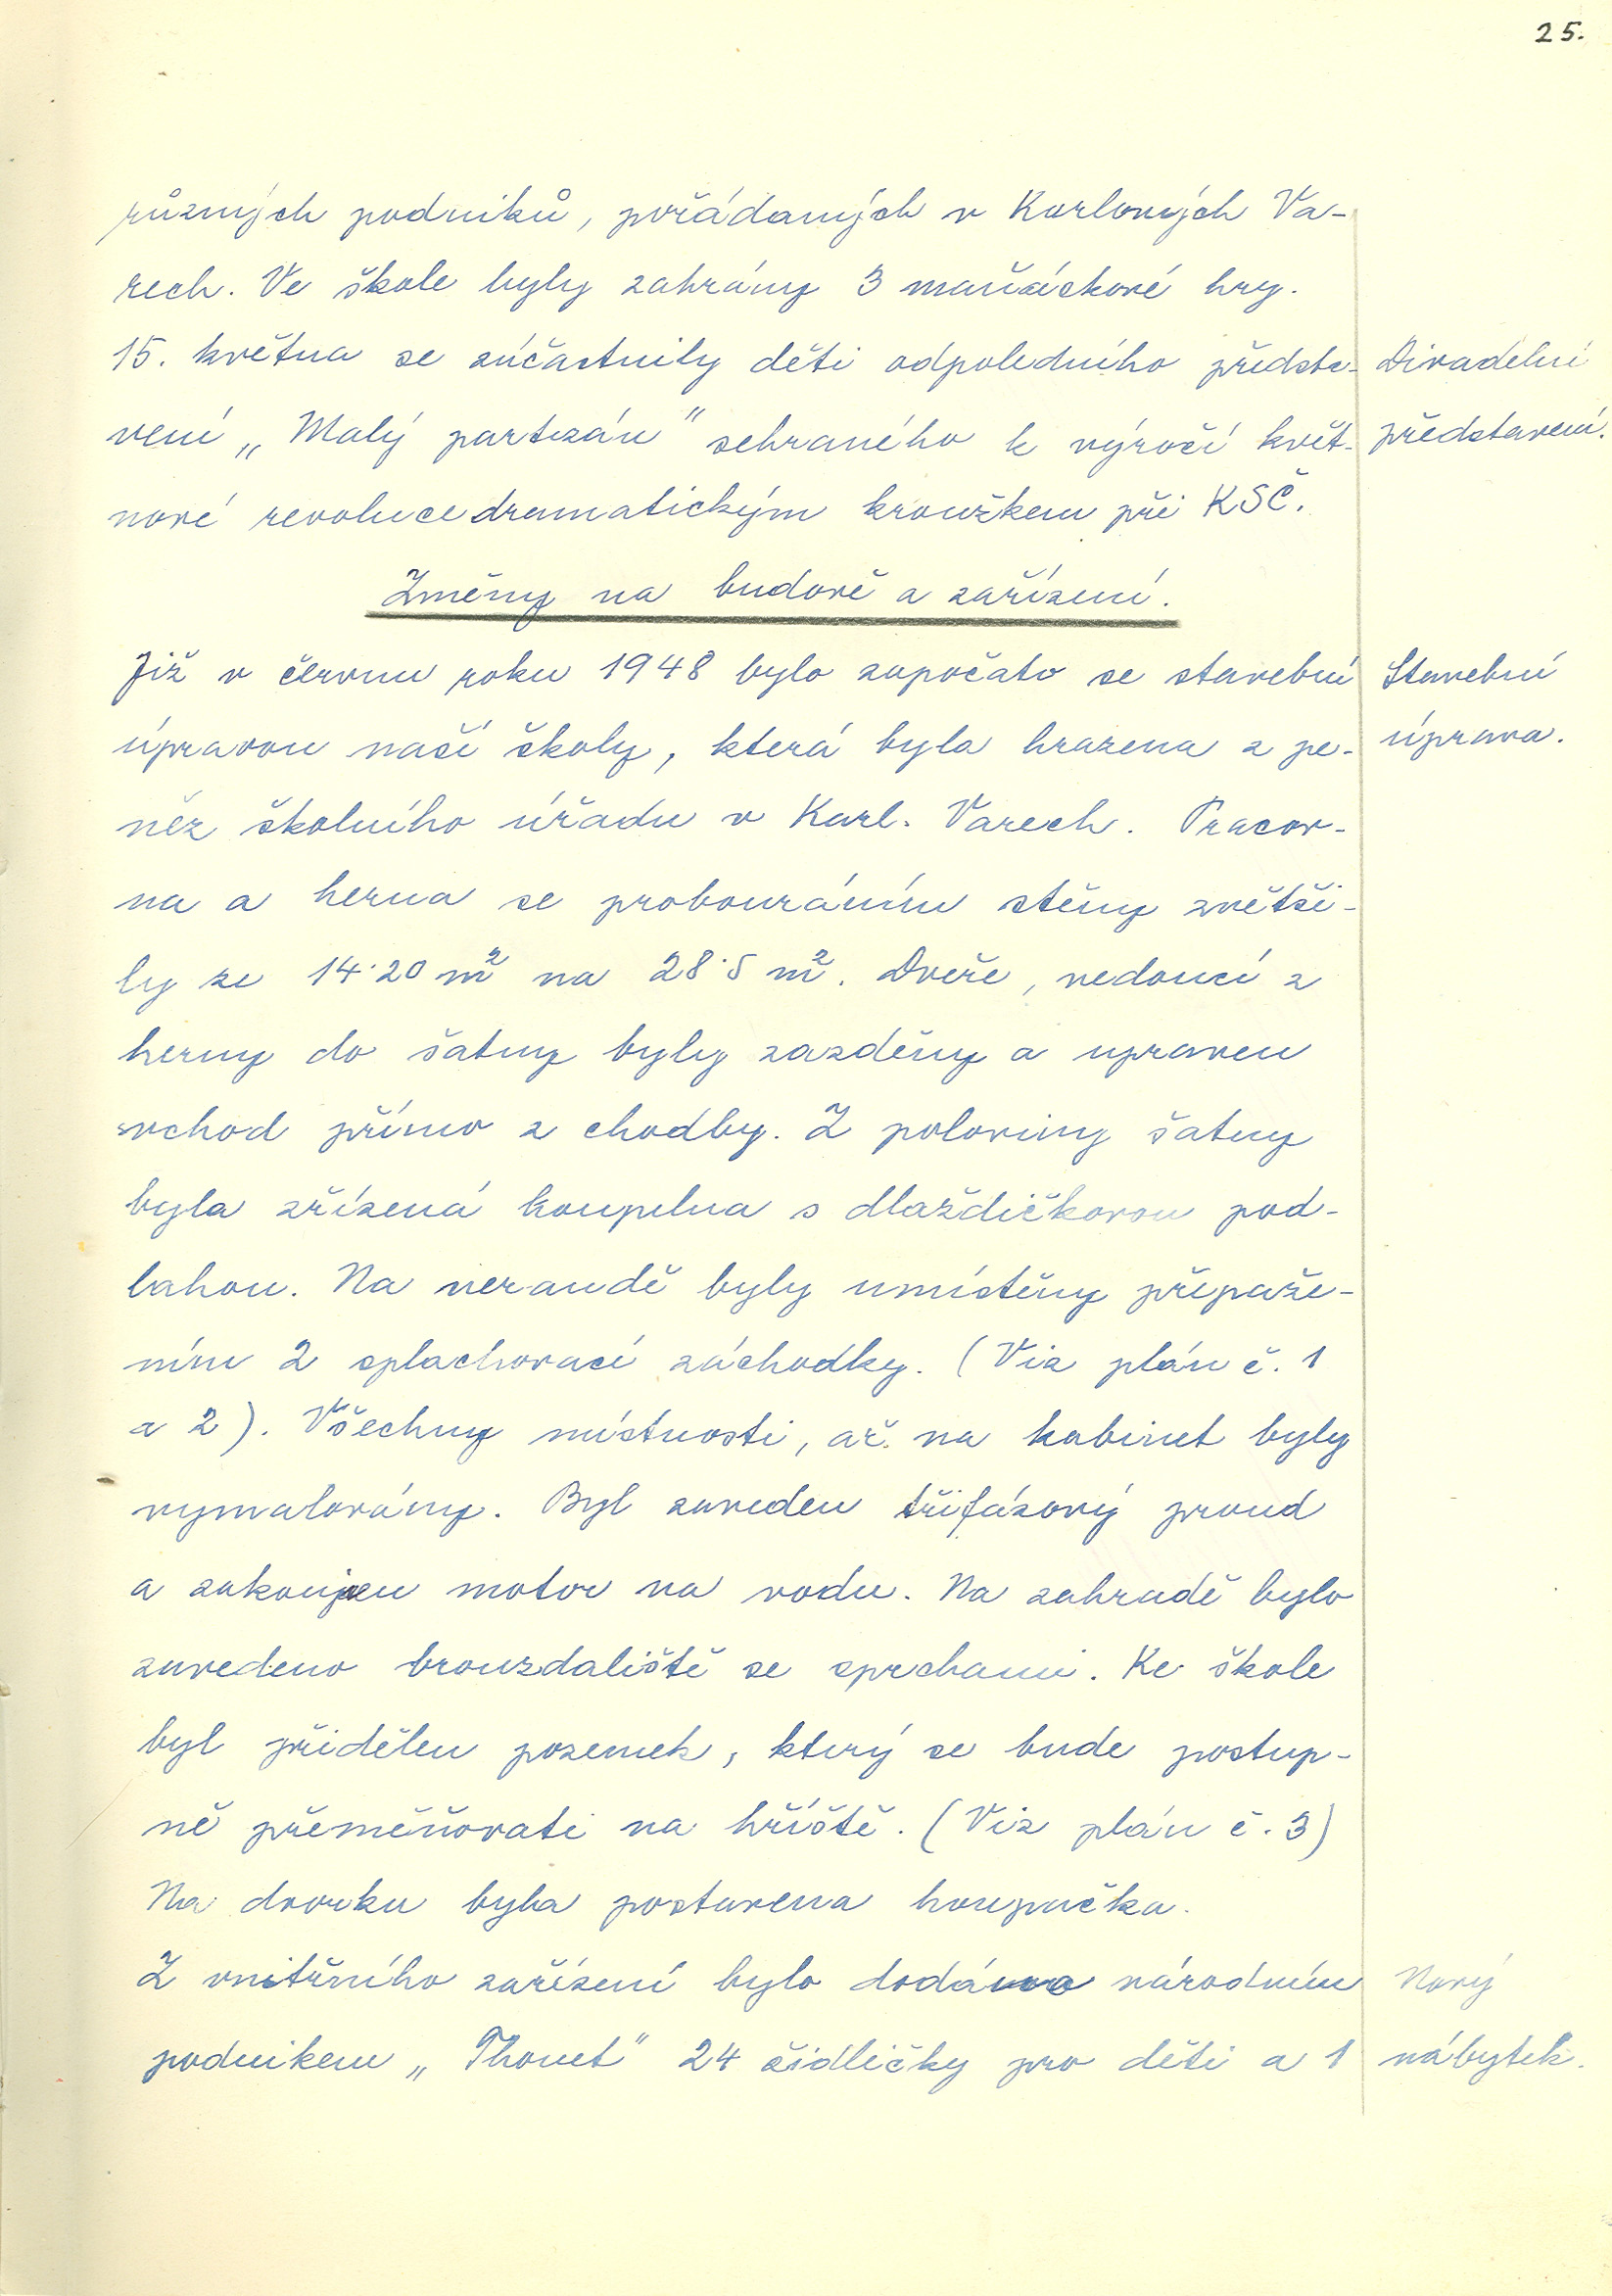 25.
různých podniků, pořádaných v Karlových Va-
rech. Ve škole byly zahrány 3 maňáskové hry.
15. května se zúčastnily děti odpoledního předsta-
Divadelní
vení „Malý partizán" sehraného k výročí květ-
představení.
nové revoluce dramatickým kroužkem při KSČ.
Změny na budově a zařízení.
Již v červnu roku 1948 bylo započato se stavební
Stavební
úpravou naší školy, která byla hrazena z pe-
úprava.
něz školního úřadu v Karl. Varech. Pracov-
na a herna se probouráním stěny zvětši-
ly ze 14·20 m² na 28·5 m². Dveře, vedoucí z
herny do šatny byly zazděny a upraven
vchod přímo z chodby. Z poloviny šatny
byla zřízená koupelna s dlaždičkovou pod-
lahou. Na verandě byly umístěny přepaže-
ním 2 splachovací záchodky. (Viz plán č. 1
a 2). Všechny místnosti, až na kabinet byly
vymalovány. Byl zaveden třífázový proud
a zakoupen motor na vodu. Na zahradě bylo
zavedeno brouzdaliště se sprchami. Ke škole
byl přidělen pozemek, který se bude postup-
ně přeměňovati na hřiště. (Viz plán č. 3)
Na dvorku byla postavena houpačka.
Z vnitřního zařízení bylo dodáno národním
Nový
podnikem „Thonet" 24 židličky pro děti a 1
nábytek.